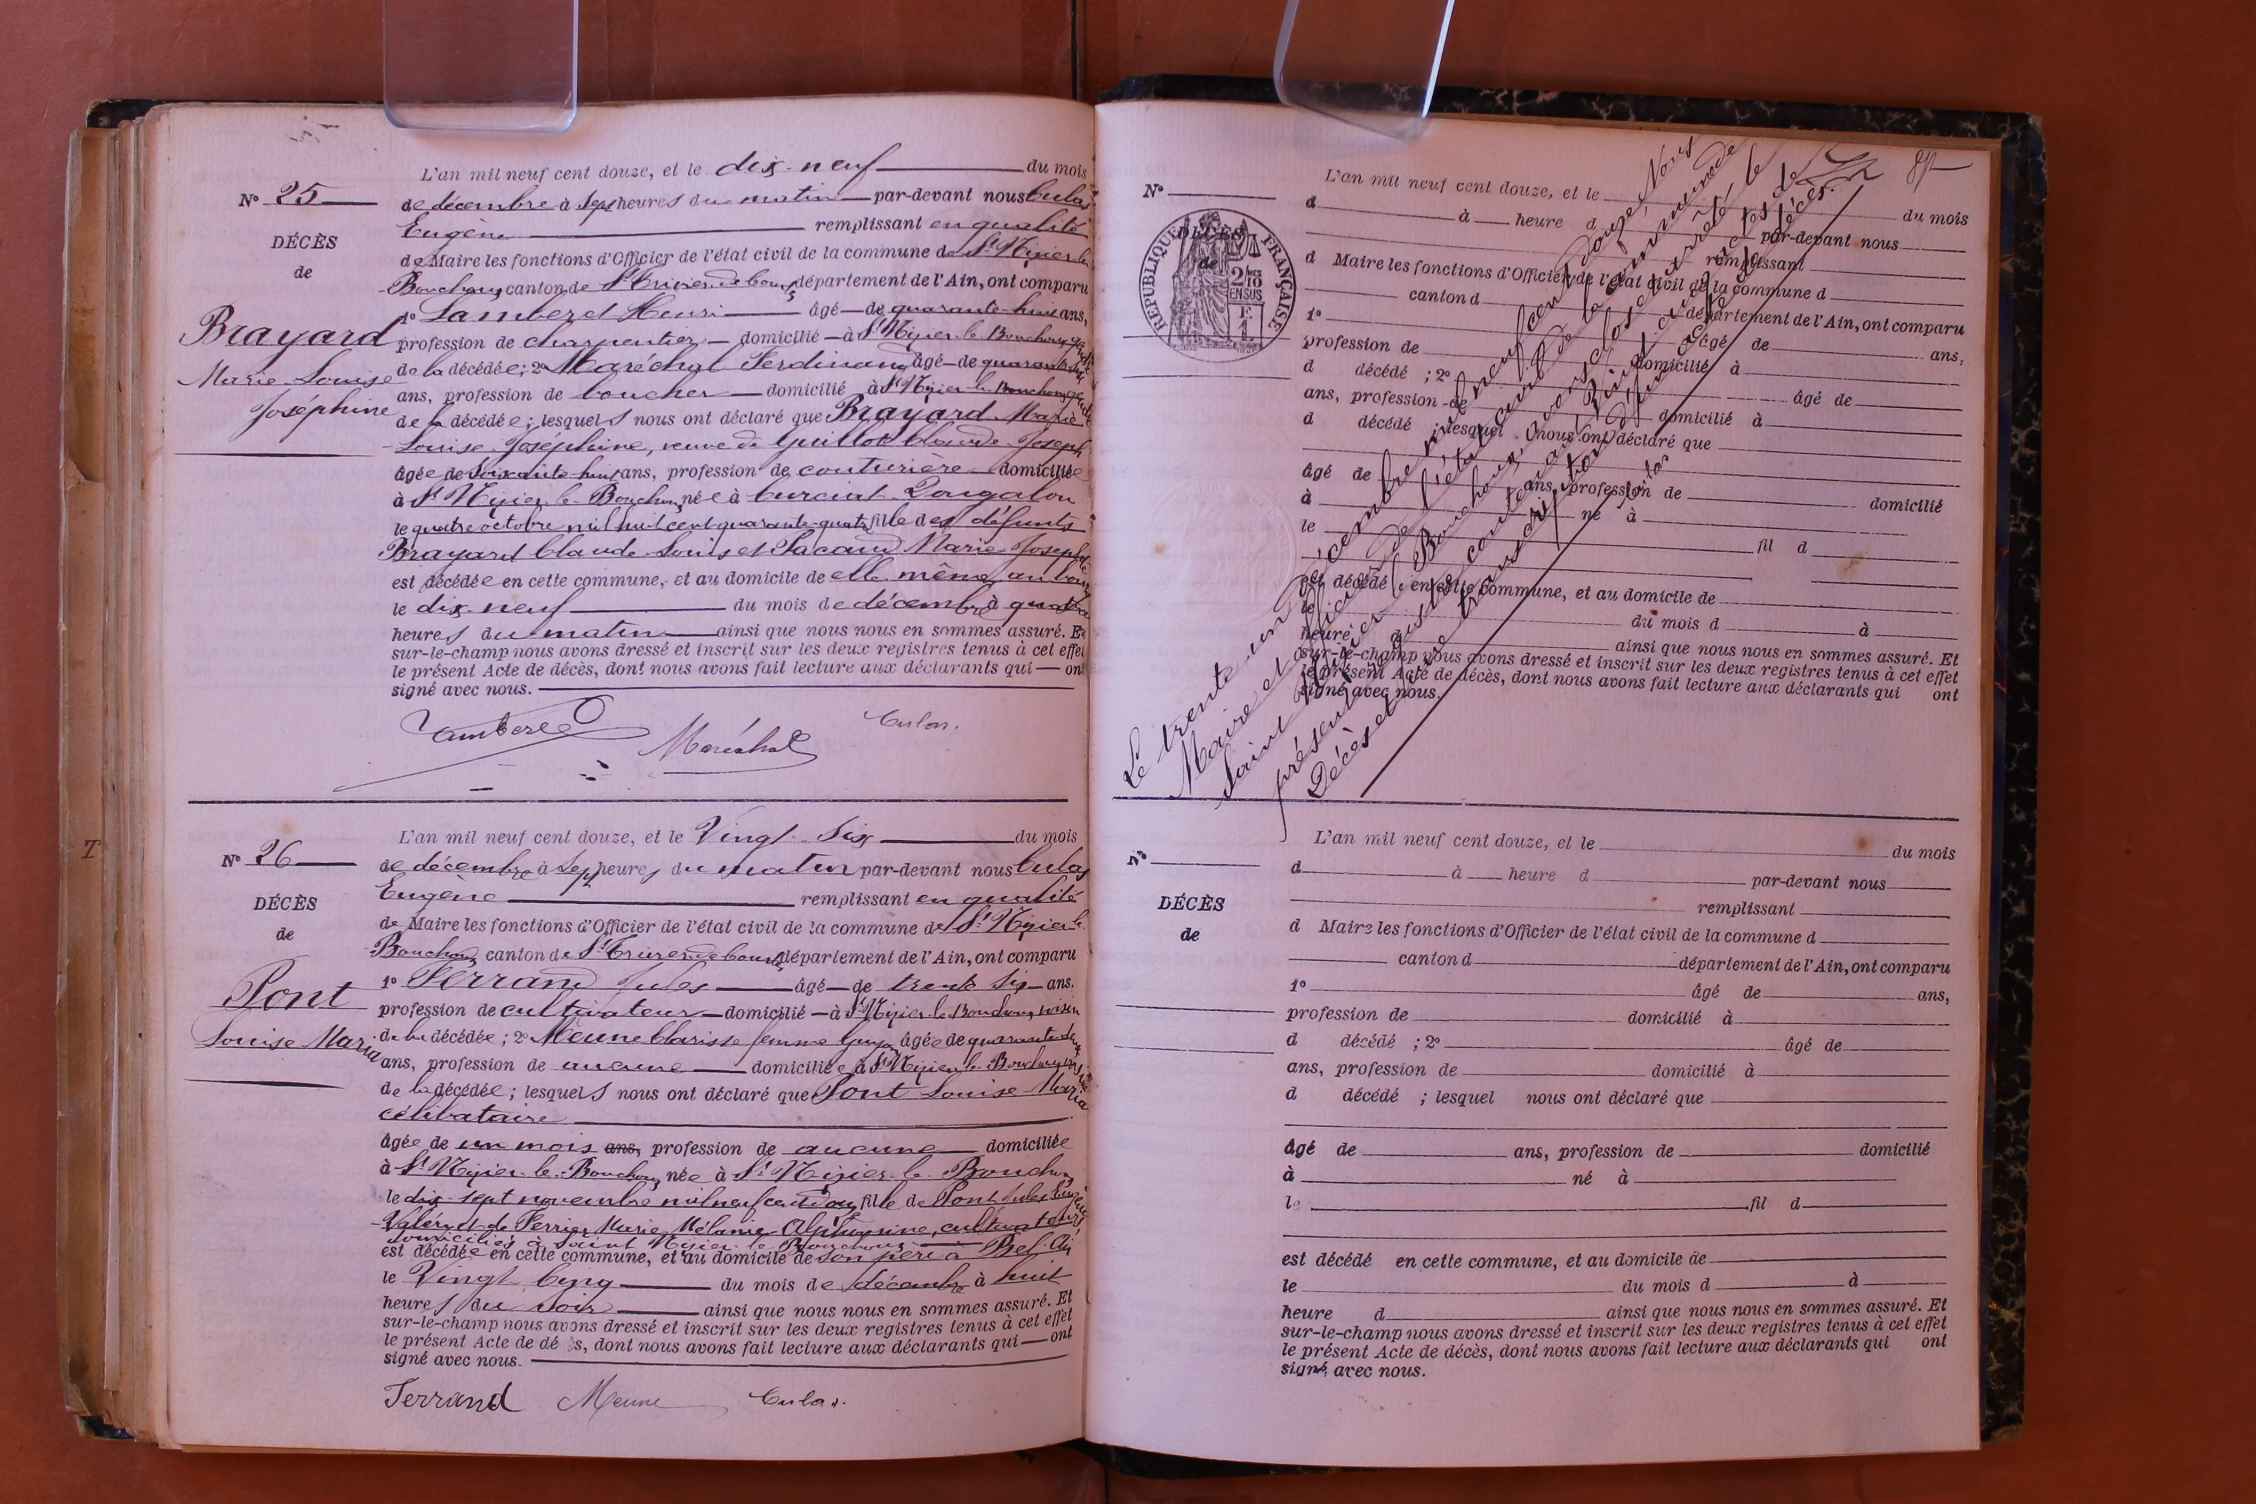 L'an mil neuf cent douze, et le dix-neuf du mois
N° 25
de décembre à sept heures du matin par-devant nous Culas
Eugène remplissant en qualité
DÉCÈS
de
de Maire les fonctions d'Officier de l'état civil de la commune de St Nizier le
Bouchoux canton de St Trivier de Courtes département de l'Ain, ont comparu
1° Lamberet Henri âgé de quarante-huit ans,
Brayard
Marie Louise
Joséphine
profession de charpentier domicilié à St Nizier le Bouchoux
de la décédée; 2° Maréchal Ferdinand âgé de quarante
ans, profession de boucher domicilié à St Nizier le Bouchoux
de la décédée; lesquels nous ont déclaré que Brayard Marie
Louise Joséphine, veuve de Guillot Claude Joseph
âgée de soixante huit ans, profession de couturière domiciliée
à St Nizier le Bouchoux née à Curciat Dongalon
le quatre octobre mil huit cent quarante-quatre fille des défunts
Brayard Claude Louis et Pacaud Marie Josephte
est décédée en cette commune, et au domicile de elle même, au bourg
le dix-neuf du mois de décembre à quatre
heures du matin ainsi que nous nous en sommes assuré. Et
sur-le-champ nous avons dressé et inscrit sur les deux registres tenus à cet effet
le présent Acte de décès, dont nous avons fait lecture aux déclarants qui ont
signé avec nous.
Lamberet Maréchal Culas.
L'an mil neuf cent douze, et le Vingt-Six du mois
N° 26
de décembre à sept heures du matin par-devant nous Culas
Eugène remplissant en qualité
DÉCÈS
de
de Maire les fonctions d'Officier de l'état civil de la commune de St Nizier le
Bouchoux canton de St Trivier de Courtes département de l'Ain, ont comparu
1° Ferrand Jules âgé de trente six ans.
Pont
Louise Maria
profession de cultivateur domicilié à St Nizier le Bouchoux, voisin
de la décédée; 2° Meune Clarisse femme Guyon âgée de quarante deux
ans, profession de aucune domiciliée à St Nizier le Bouchoux
de la décédée; lesquels nous ont déclaré que Pont Louise Maria
célibataire
âgée de un mois ans, profession de aucune domiciliée
à St Nizier le Bouchoux née à St Nizier le Bouchoux
le dix-sept novembre mil neuf cent douze fille de Pont Jules
Valéry et de Ferrier Marie Mélanie Alphonsine, cultivateurs
domiciliés à Saint Nizier le Bouchoux
est décédée en cette commune, et au domicile de son père à Bel-Air
le Vingt Cinq du mois de décembre à huit
heures du soir ainsi que nous nous en sommes assuré. Et
sur-le-champ nous avons dressé et inscrit sur les deux registres tenus à cet effet
le présent Acte de dé s, dont nous avons fait lecture aux déclarants qui ont
signé avec nous.
Ferrand Meune Culas.
L'an mil neuf cent douze, et le du mois
N°
d à heure d par-devant nous
remplissant
DÉCÈS
de
RÉPUBLIQUE FRANÇAISE
2/10
EN SUS
d Maire les fonctions d'Officier de l'état civil de la commune d
canton d département de l'Ain, ont comparu
1° âgé de ans,
profession de domicilié à
d décédé ; 2° âgé de
ans, profession de domicilié à
d décédé ; lesquel nous ont déclaré que
âgé de ans, profession de domicilié
à né à
le fil d
est décédé en cette commune, et au domicile de
le du mois d à
heure d ainsi que nous nous en sommes assuré. Et
sur-le-champ nous avons dressé et inscrit sur les deux registres tenus à cet effet
le présent Acte de décès, dont nous avons fait lecture aux déclarants qui ont
signé avec nous.
Le trente un Décembre mil neuf cent douze, Nous
Maire et officier de l'état civil de la commune de
Saint Nizier le Bouchoux, avons clos et arrêté le
présent registre contenant Vingt six actes de
Décès et une transcription d'un acte de décès.
Culas
L'an mil neuf cent douze, et le du mois
N°
d à heure d par-devant nous
remplissant
DÉCÈS
de
d Maire les fonctions d'Officier de l'état civil de la commune d
canton d département de l'Ain, ont comparu
1° âgé de ans,
profession de domicilié à
d décédé ; 2° âgé de
ans, profession de domicilié à
d décédé ; lesquel nous ont déclaré que
âgé de ans, profession de domicilié
à né à
le fil d
est décédé en cette commune, et au domicile de
le du mois d à
heure d ainsi que nous nous en sommes assuré. Et
sur-le-champ nous avons dressé et inscrit sur les deux registres tenus à cet effet
le présent Acte de décès, dont nous avons fait lecture aux déclarants qui ont
signé, avec nous.